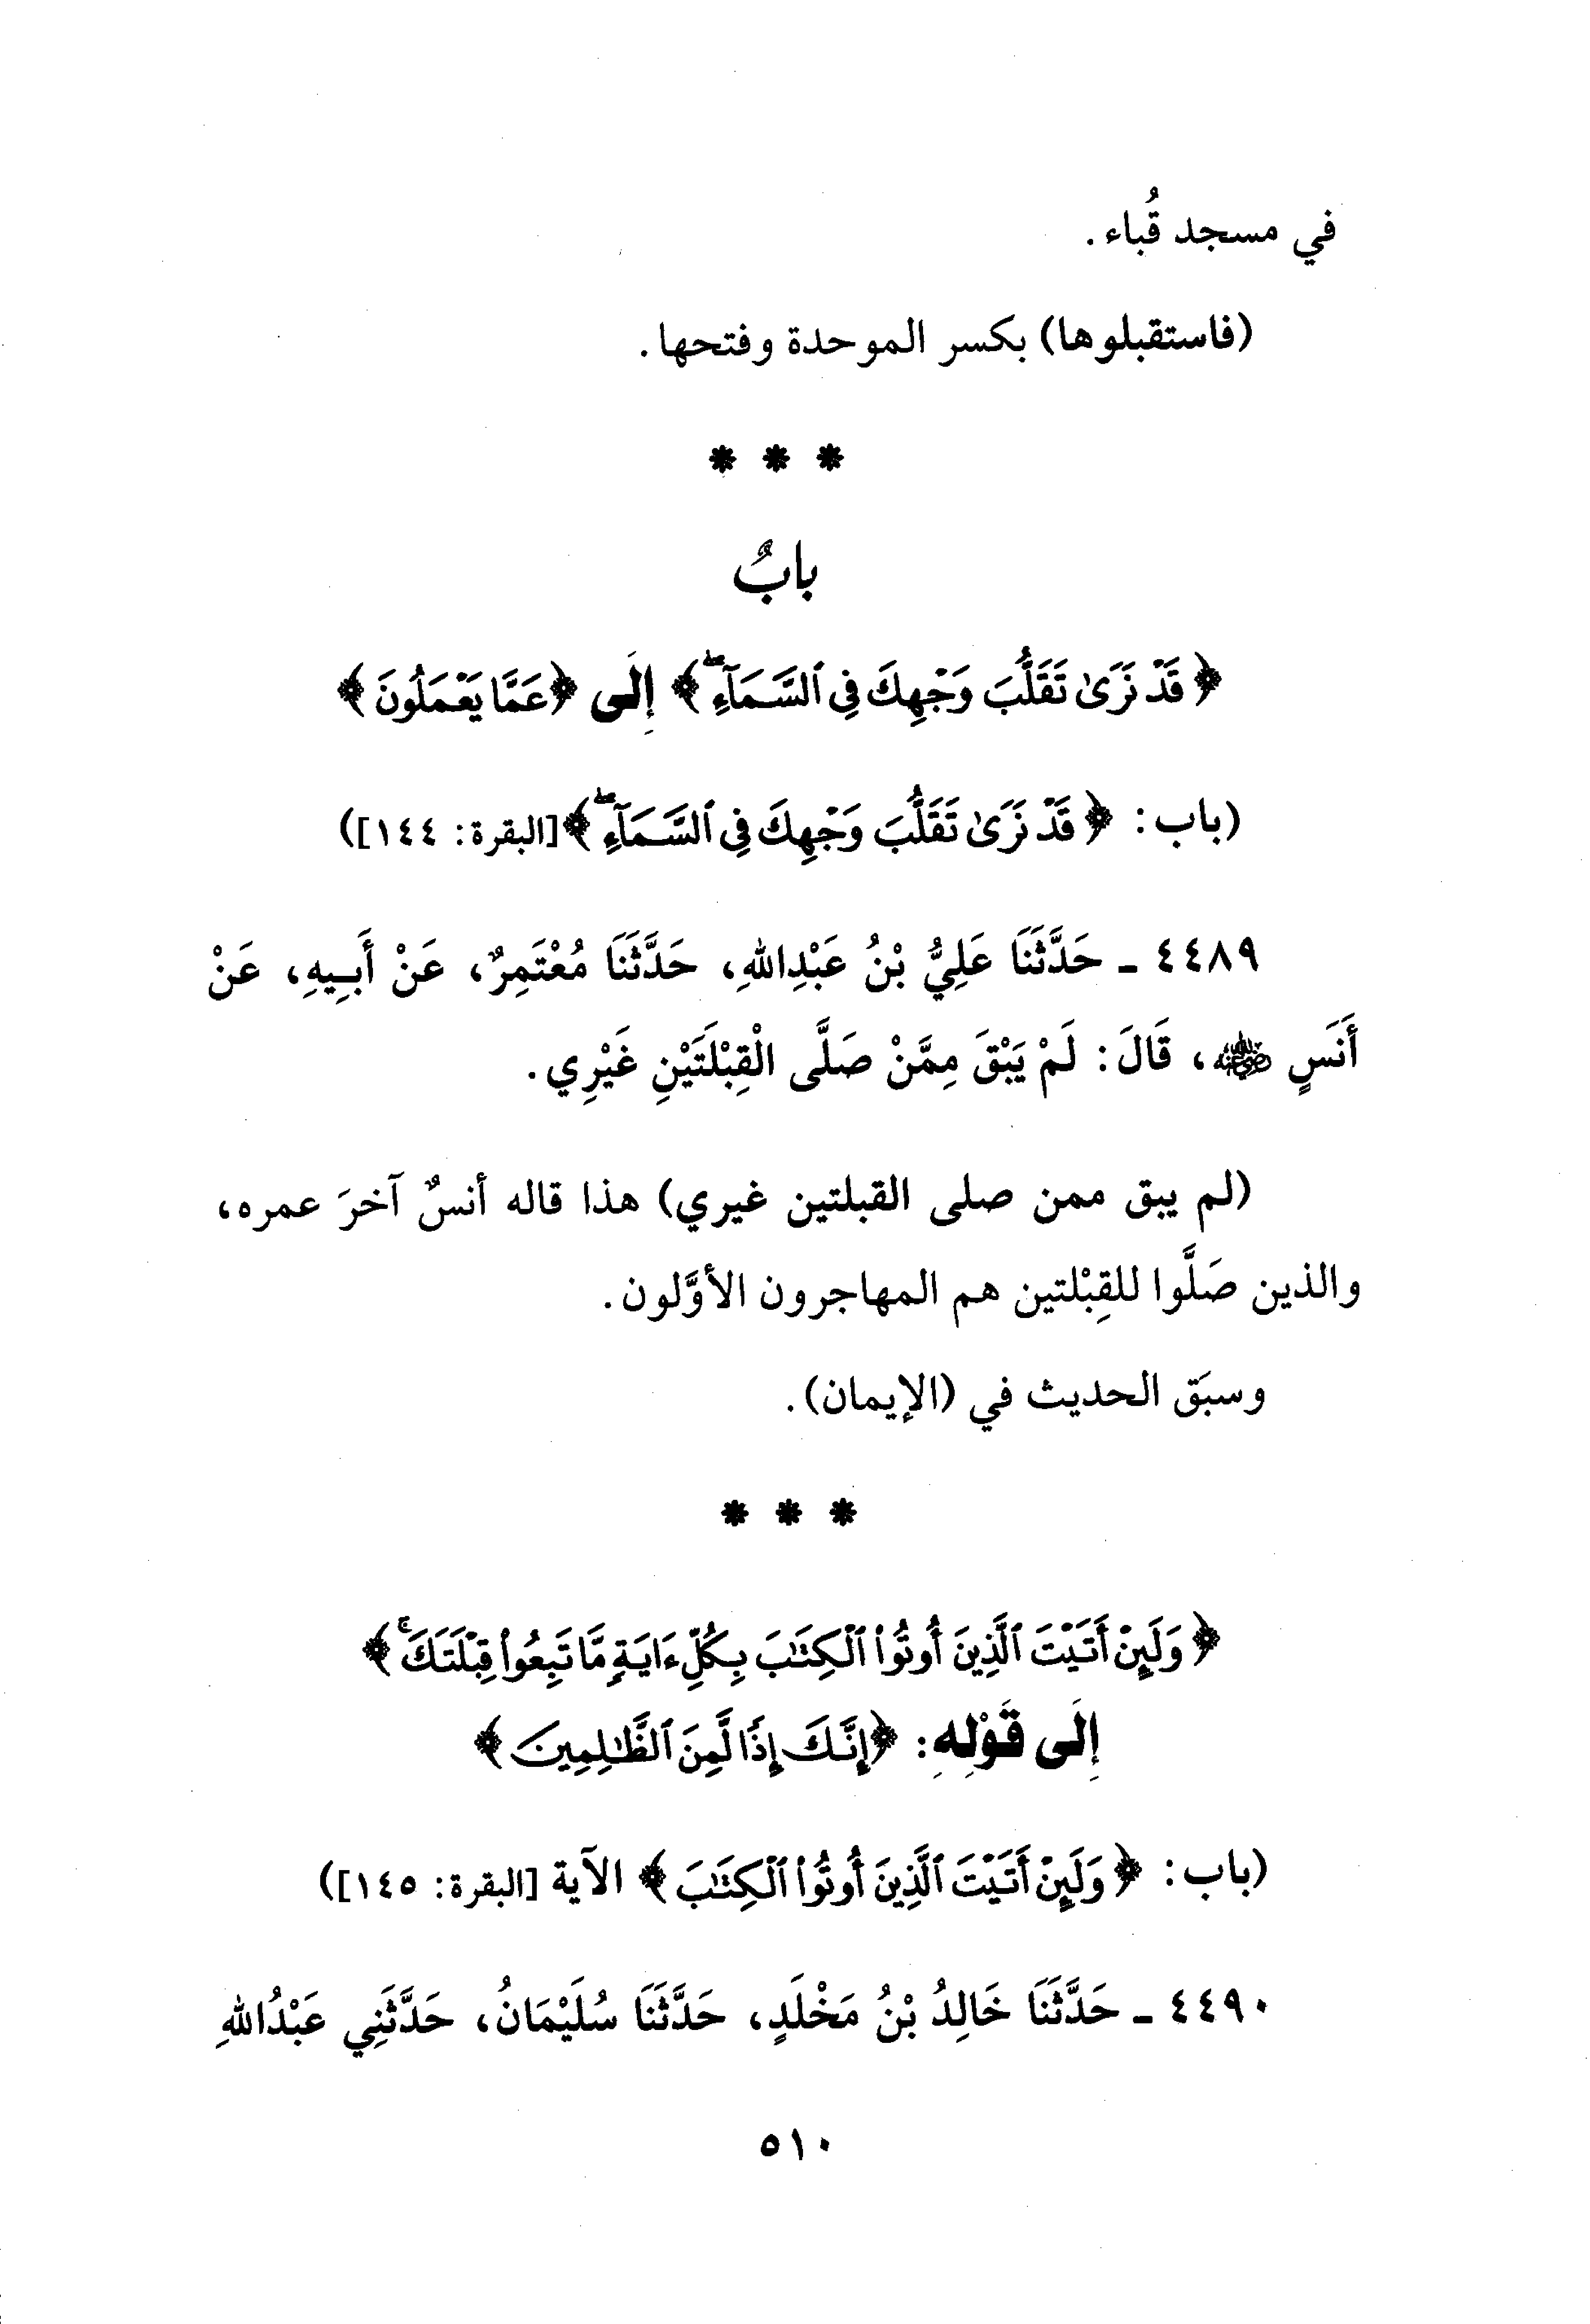 في مسجد قُباء.
(فاستقبلوها) بكسر الموحدة وفتحها.
* * *
بابٌ
﴿قَدْ نَرَىٰ تَقَلُّبَ وَجْهِكَ فِي ٱلسَّمَآءِۖ﴾ إِلَى ﴿عَمَّا يَعْمَلُونَ﴾
(باب: ﴿قَدْ نَرَىٰ تَقَلُّبَ وَجْهِكَ فِي ٱلسَّمَآءِۖ﴾ [البقرة: ١٤٤])
٤٤٨٩ - حَدَّثَنَا عَلِيُّ بْنُ عَبْدِاللهِ، حَدَّثَنَا مُعْتَمِرٌ، عَنْ أَبِيهِ، عَنْ
أَنَسٍ ﵁، قَالَ: لَمْ يَبْقَ مِمَّنْ صَلَّى الْقِبْلَتَيْنِ غَيْرِي.
(لم يبق ممن صلى القبلتين غيري) هذا قاله أنسٌ آخرَ عمره،
والذين صَلَّوا للقِبْلتين هم المهاجرون الأوَّلون.
وسبَق الحديث في (الإيمان).
* * *
﴿وَلَئِنْ أَتَيْتَ ٱلَّذِينَ أُوتُوا۟ ٱلْكِتَٰبَ بِكُلِّ ءَايَةٍ مَّا تَبِعُوا۟ قِبْلَتَكَۚ﴾
إِلَى قَوْلِهِ: ﴿إِنَّكَ إِذًا لَّمِنَ ٱلظَّٰلِمِينَ﴾
(باب: ﴿وَلَئِنْ أَتَيْتَ ٱلَّذِينَ أُوتُوا۟ ٱلْكِتَٰبَ﴾ الآية [البقرة: ١٤٥])
٤٤٩٠ - حَدَّثَنَا خَالِدُ بْنُ مَخْلَدٍ، حَدَّثَنَا سُلَيْمَانُ، حَدَّثَنِي عَبْدُاللهِ
٥١٠